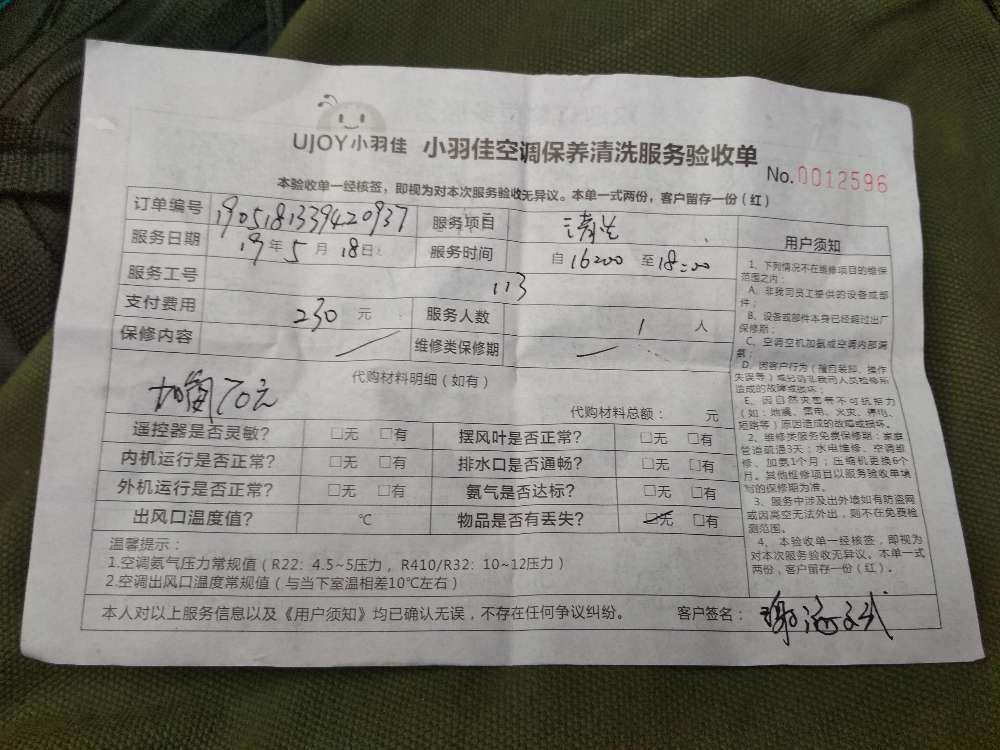 UJOY小羽佳 小羽佳空调保养清洗服务验收单
No.0012596
本验收单一经核签，即视为对本次服务验收无异议。本单一式两份，客户留存一份（红）
订单编号 1905181339420937 服务项目 清洗
服务日期 19年5月18日 服务时间 自16:00至18:00
服务工号 113
支付费用 230元 服务人数 1人
保修内容 / 维修类保修期 /
代购材料明细（如有）
70元
代购材料总额： 元
遥控器是否灵敏？ □无 □有 摆风叶是否正常？ □无 □有
内机运行是否正常？ □无 □有 排水口是否通畅？ □无 □有
外机运行是否正常？ □无 □有 氨气是否达标？ □无 □有
出风口温度值？ ℃ 物品是否有丢失？ □无 □有
温馨提示：
1.空调氨气压力常规值（R22：4.5~5压力，R410/R32：10~12压力）
2.空调出风口温度常规值（与当下室温相差10℃左右）
本人对以上服务信息以及《用户须知》均已确认无误，不存在任何争议纠纷。 客户签名：
用户须知
1、下列情况不在维修项目的维保
范围之内：
A、非我司员工提供的设备或部
件；
B、设备或部件本身已经超过出厂
保修期；
C、空调空机加氨或空调内部漏
氨；
D、因客户行为（擅自装卸、操作
失误等）或另请非我司人员检修所
造成的故障或损坏；
E、因自然灾害等不可抗拒力
（如：地震、雷电、火灾、停电、
短路等）原因造成的故障或损坏。
2、维修类服务免费保修期：家庭
管道疏通3天；水电维修、空调维
修、加氨1个月；压缩机更换6个
月。其他维修项目以服务验收单填
写的保修期为准。
3、服务中涉及出外墙如有防盗网
或因高空无法外出，则不在免费检
测范围。
4、本验收单一经核签，即视为
对本次服务验收无异议。本单一式
两份，客户留存一份（红）。